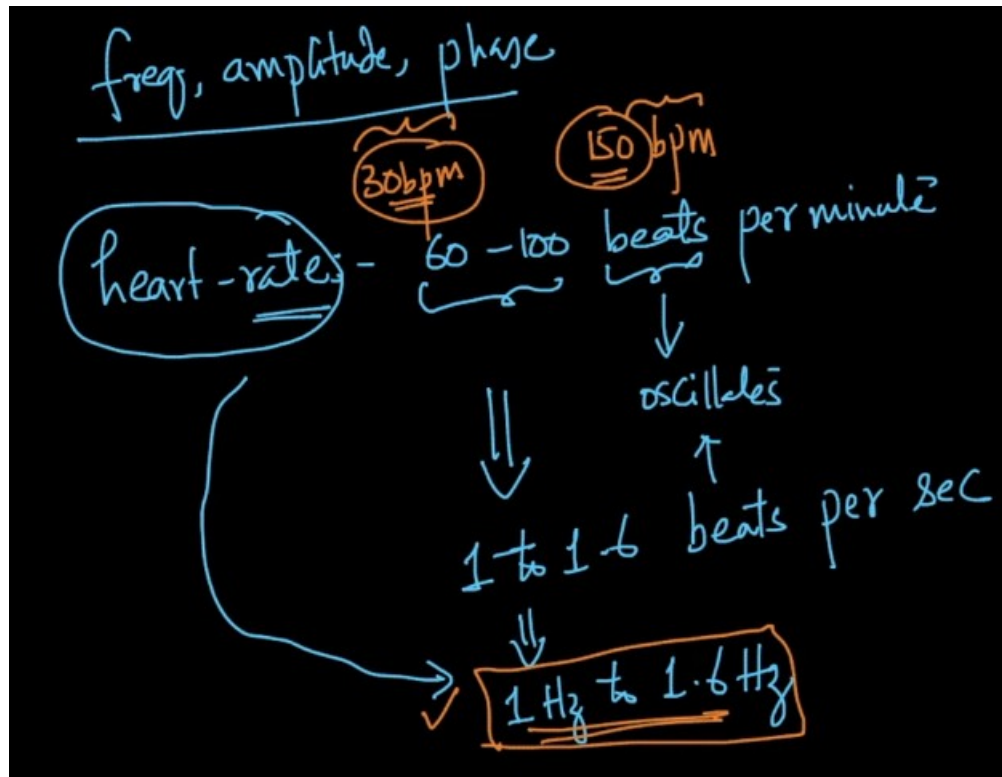 freq, amplitude, phase
30bpm 150 bpm
heart-rate:- 60-100 beats per minute
oscillates
1 to 1.6 beats per sec
1 Hz to 1.6 Hz